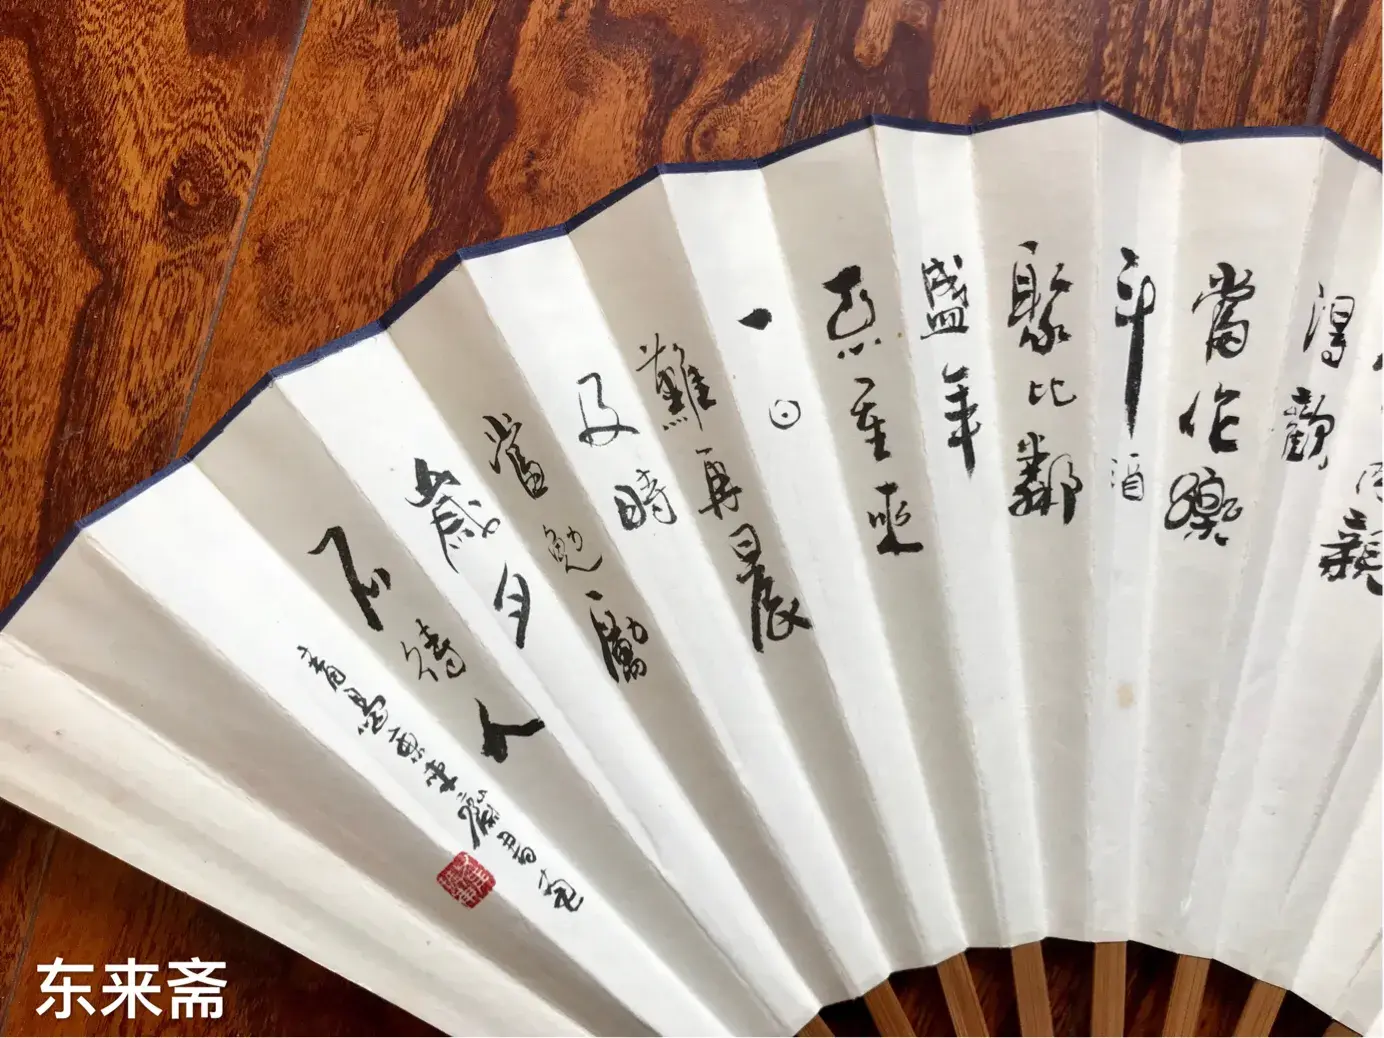 肉親
得歡
當作樂
斗酒
聚比鄰
盛年
不重來
一日
難再晨
及時
當勉勵
歲月
不待人
青島東來齋
东来斋